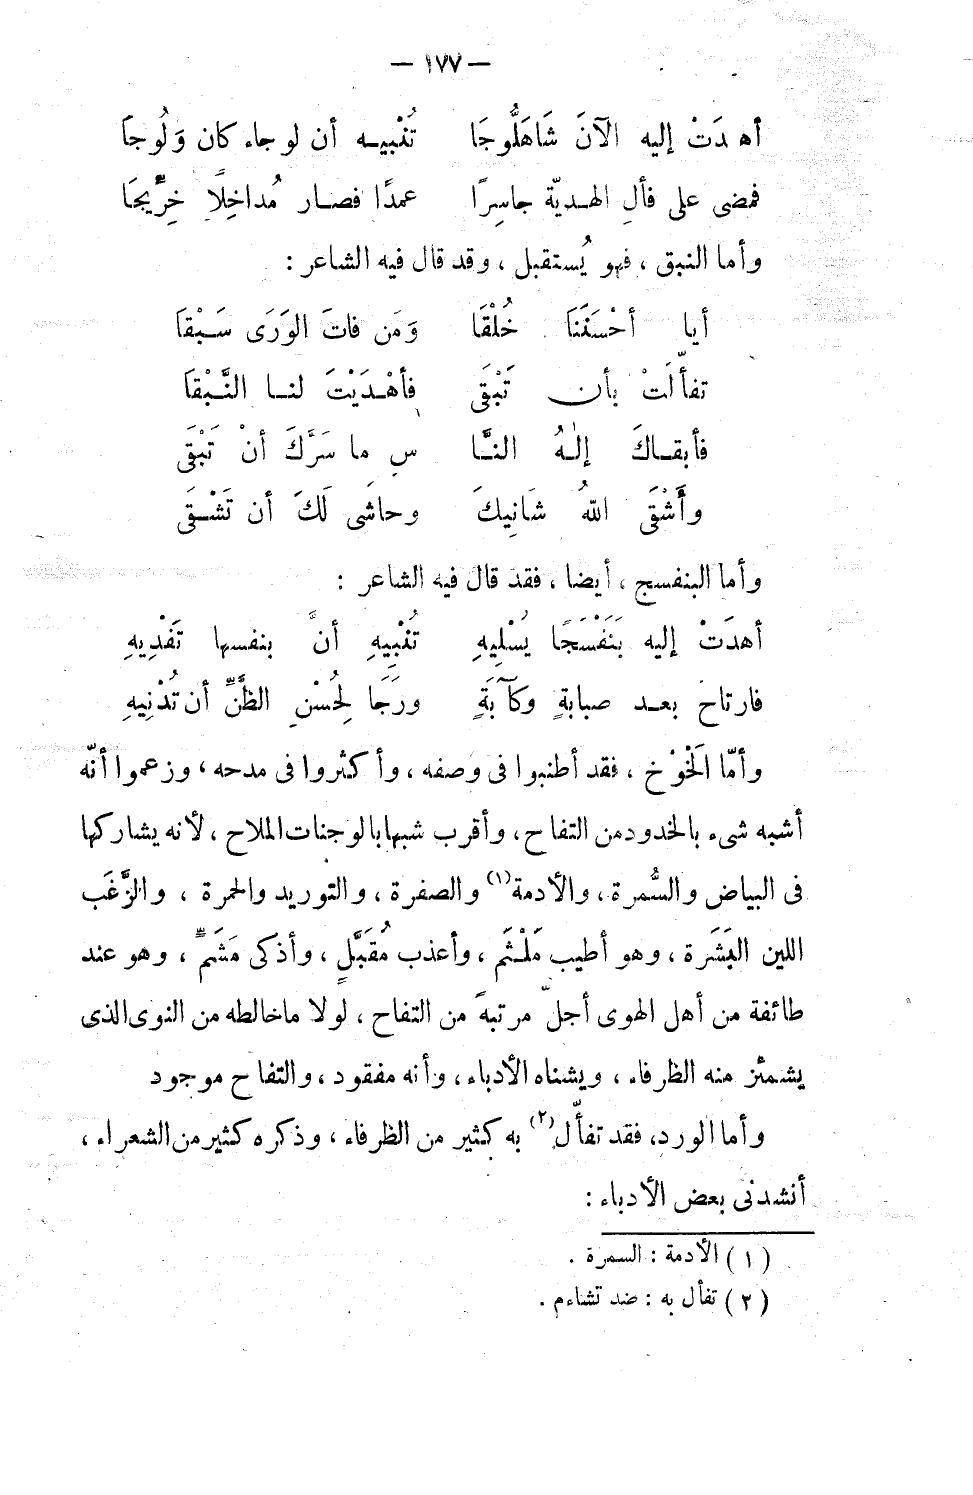 — ١٧٧ —
أهدَتْ إليه الآنَ شَاهَلُّوجَا تُنْبيـه أن لو جاء كان وَلُوجاَ
فمضى على فألِ الهـديّة جاسِرًا عمدًا فصـار مُداخِلًا خِرِّيجَا
وأما النبق ، فهو يُستقبل ، وقد قال فيه الشاعر :
أيا أحْسَنَنَا خُلْقَا وَمَن فاتَ الوَرَى سَـبْقاَ
تفأّلَتْ بأن تَبْقَى فأهْـدَيْتَ لنـا النَّـبْقاَ
فأبقـاكَ إلـٰهُ النـَّا سِ ما سَرَّكَ أنْ تَبْقَى
وأَشْقَى اللهُ شَانِيكَ وحاشى لَكَ أن تَشْـقَى
وأما البنفسج ، أيضا ، فقد قال فيه الشاعر :
أهدَتْ إليه بَنَفْسَجًا يُسْلِيهِ تُنْبِيهِ أنَّ بنفسها تَفْدِيهِ
فارتاحَ بعـد صبابةٍ وكآبَةٍ ورَجَا لِحُسْنِ الظَّنِّ أن تُدْنِيهِ
وأمّا الَخْوْخ ، فقد أطنبوا فى وصفه ، وأكثروا فى مدحه ، وزعموا أنّه
أشبه شىء بالخدود من التفاح ، وأقرب شبها بالوجنات الملاح ، لأنه يشاركها
فى البياض والسُّمرة ، والأدمة(١) والصفرة ، والتوريد والحمرة ، والزَّغَب
اللين البَشَرة ، وهو أطيب مَلْثَم ، وأعذب مُقَبَّلٍ ، وأذكى مَشَمٍّ ، وهو عند
طائفة من أهل الهوى أجلّ مرتبةً من التفاح ، لولا ما خالطه من النوى الذى
يشمئز منه الظرفاء ، ويشناه الأدباء ، وأنه مفقود ، والتفاح موجود
وأما الورد، فقد تفأّل(٢) به كثير من الظرفاء ، وذكره كثير من الشعراء ،
أنشدنى بعض الأدباء :
(١) الأدمة : السمرة .
(٢) تفأل به : ضد تشاءم .